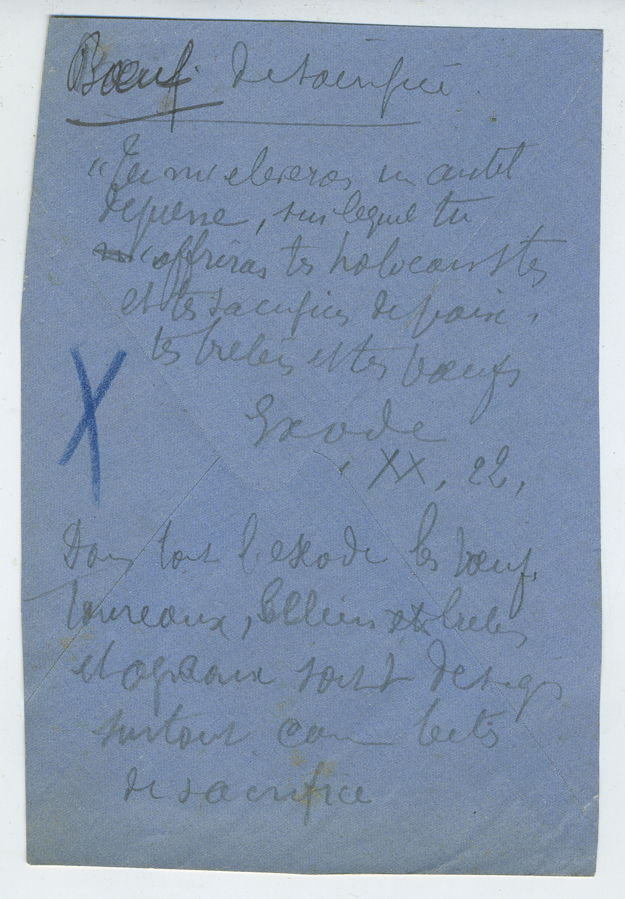 Bœuf de sacrifice
"Tu m'eleveras un autel
de pierre, sur lequel tu
m'offriras tes holocaustes
et tes sacrifices de paix,
tes brebis et tes bœufs
Exode
XX, 22,
Dans tout l'exode les bœufs
taureaux, béliers et brebis
et agneaux sont designés
surtout com betes
de sacrifice
X